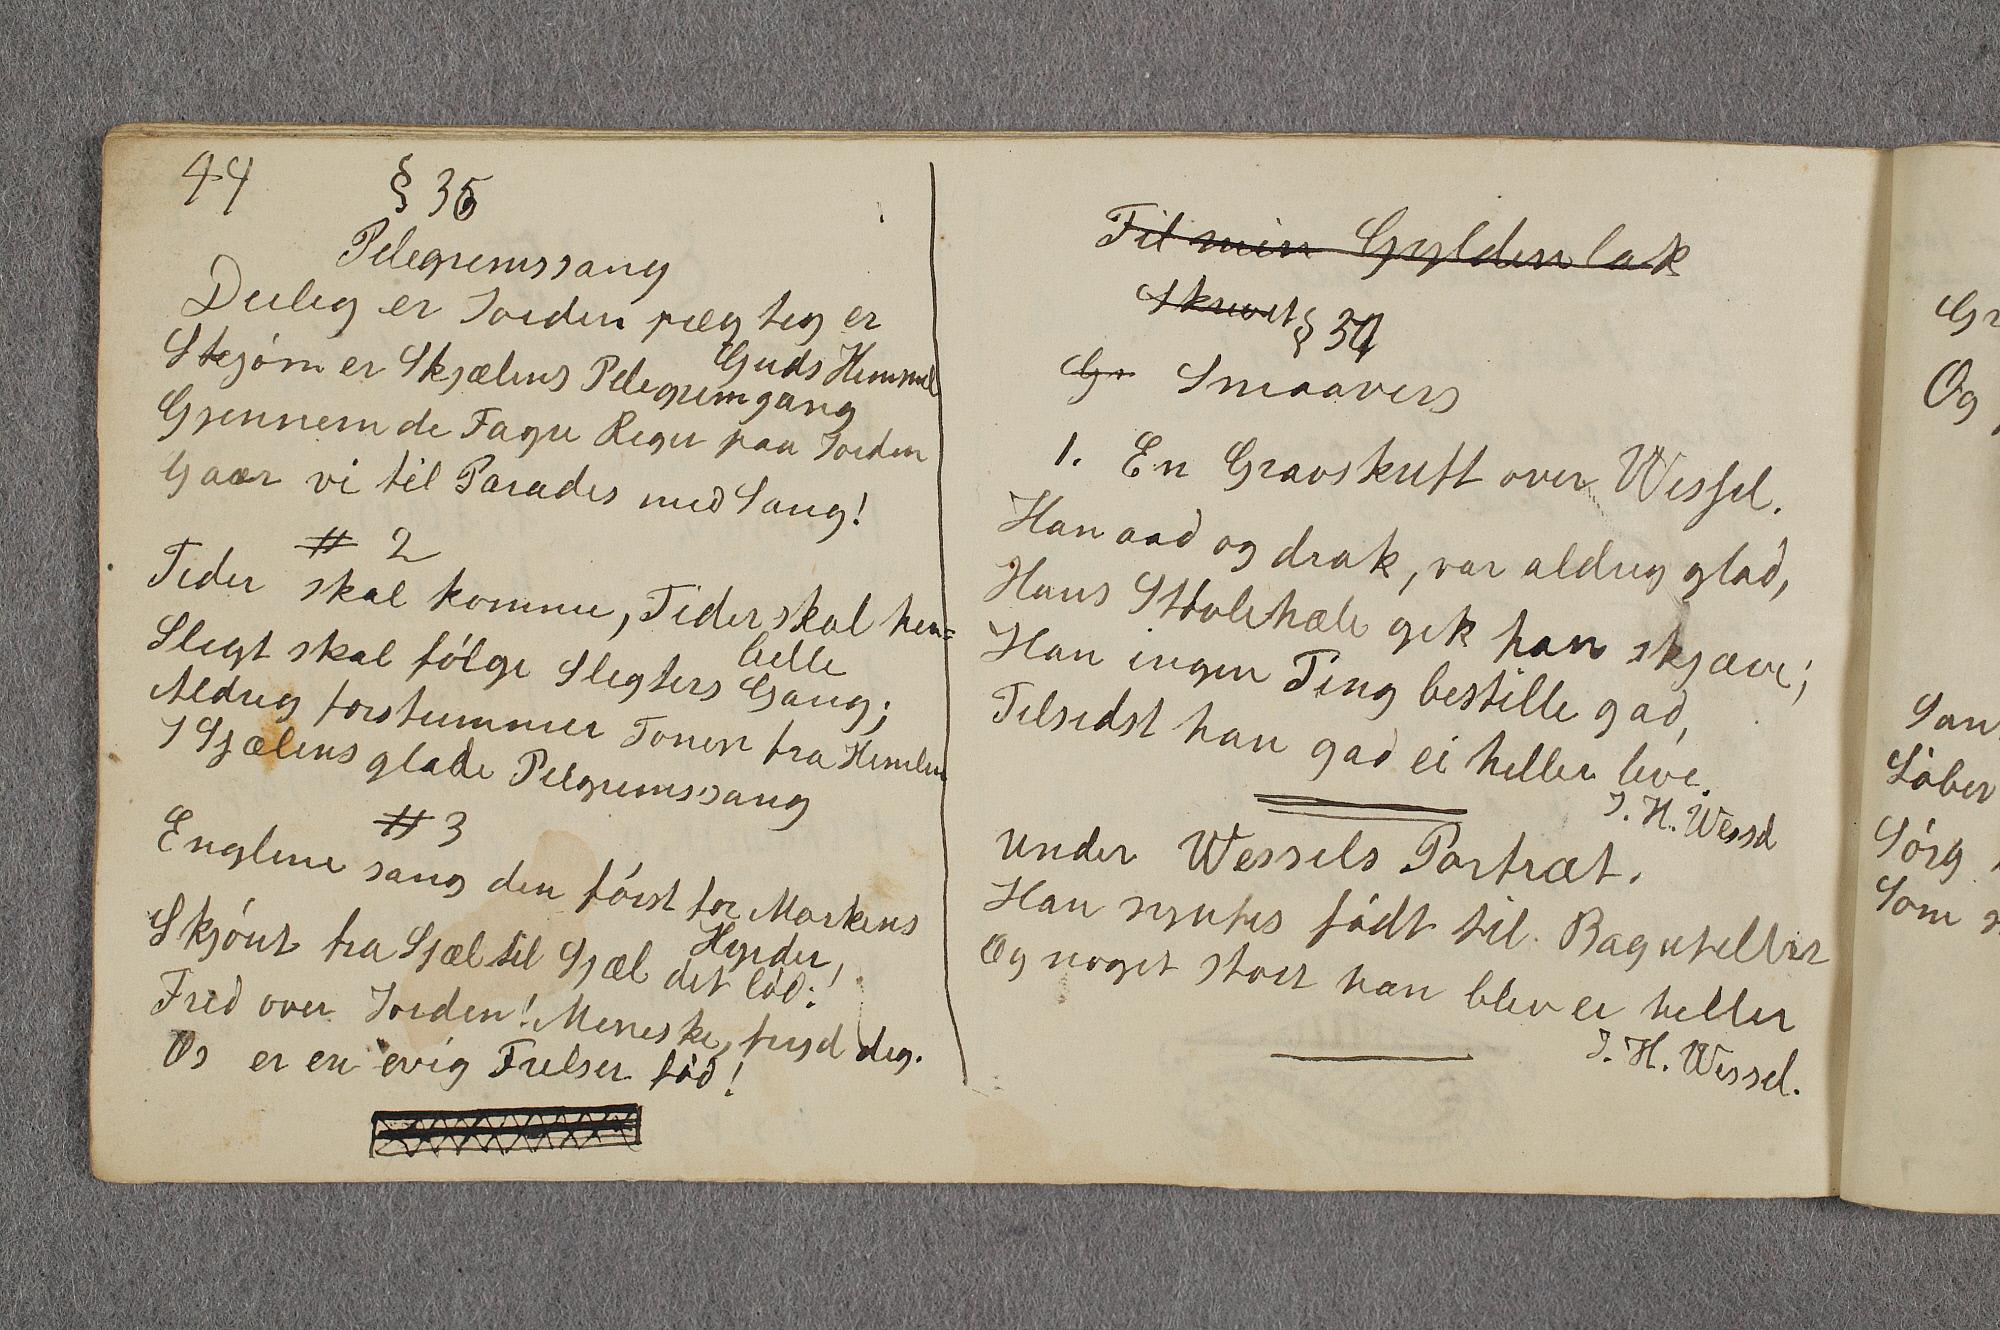 44
§ 36
Pelegrimssang
Deilig er Jorden prægtig er
Guds Himmel
Skjøn er Skjælens Pelegrimgang
Gjennem de Fagre Riger paa Jorden
Gaar vi til Paradis med Sang!
# 2
Tider skal komme, Tider skal hen=
belle
Slegt skal følge Slegters Gang;
Aldrig forstummer Tonen fra Himlen
I Sjælens glade Pilgrimssang
# 3
Englene sang den først for Markens
Hyrder,
Skjønt fra Sjæl til Sjæl det lød:
Fred over Jorden! Meneske, fryd dig.
Os er en evig Frelser fød!
Til min Gyldenlak
Skrevet § 37
Gr Smaavers
1. En Gravskrift over Wessel.
Han aad og drak, var aldrig glad,
Hans Støvlehæle gik han skjæve;
Han ingen Ting bestille gad,
Tilsidst han gad ei heller leve.
J. H. Wessel
Under Wessels Portræt.
Han syntes født til Bagateller
Og noget stort han blev ei heller
J. H. Wessel.
Gr
Og
San
Løber
Sørg
Som